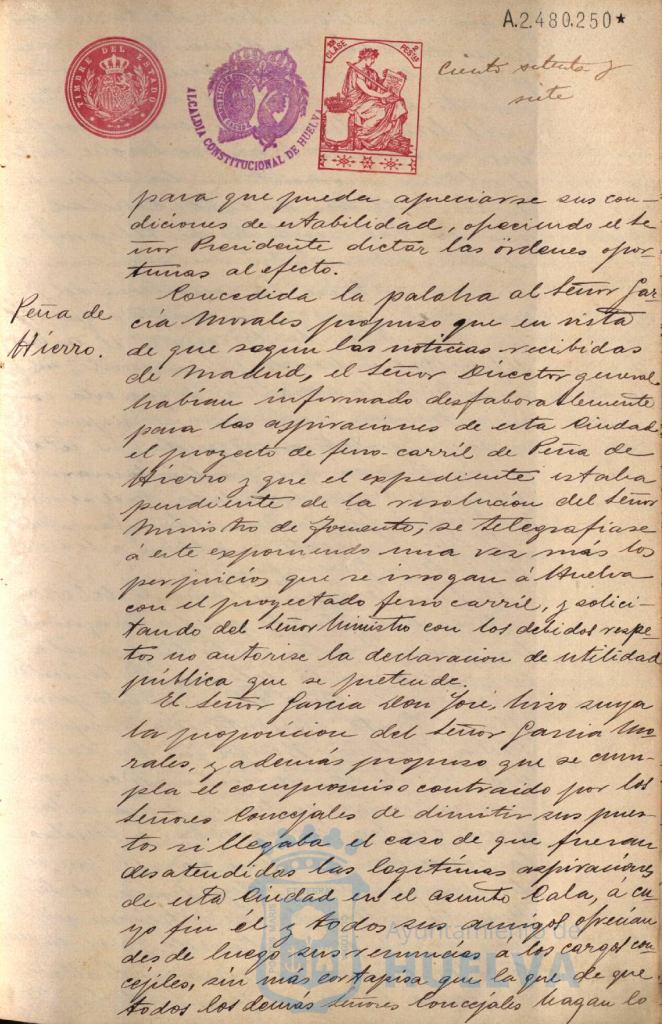 A.2.480.250★
TIMBRE DEL ESTADO
ALCALDIA CONSTITUCIONAL DE HUELVA
CLASE
PESETAS
ciento setenta y
siete
para que pueda apreciarse sus con-
diciones de estabilidad, ofreciendo el Se
ñor Presidente dictar las órdenes opor-
tunas al efecto.
Peña de
Hierro.
Concedida la palabra al Señor Gar-
cía Morales propuso que en vista
de que segun las noticias recibidas
de Madrid, el Señor Director general
habian informado desfaborablemente
para las aspiraciones de esta Ciudad
el proyecto de ferro-carril de Peña de
Hierro y que el expediente estaba
pendiente de la resolucion del Señor
Ministro de Fomento, se telegrafiase
á este exponiendo una vez más los
perjuicios que se irrogan á Huelva
con el proyectado ferro carril, y solici-
tando del Señor Ministro con los debidos respe-
tos no autorise la declaracion de utilidad
pública que se pretende.
El Señor Garcia Don José, hizo suya
la proposicion del Señor Garcia Mo-
rales, y además propuso que se cum-
pla el compromiso contraido por los
Señores Concejales de dimitir sus pues-
tos si llegaba el caso de que fueran
desatendidas las legitimas aspiraciones
de esta Ciudad en el asunto Cala, a cu-
yo fin él y todos sus amigos ofrecian
desde luego sus renuncias a los cargos con-
cejiles, sin más cortapisa que la que de que
todos los demas Señores Concejales hagan lo
Ayuntamiento de
HUELVA